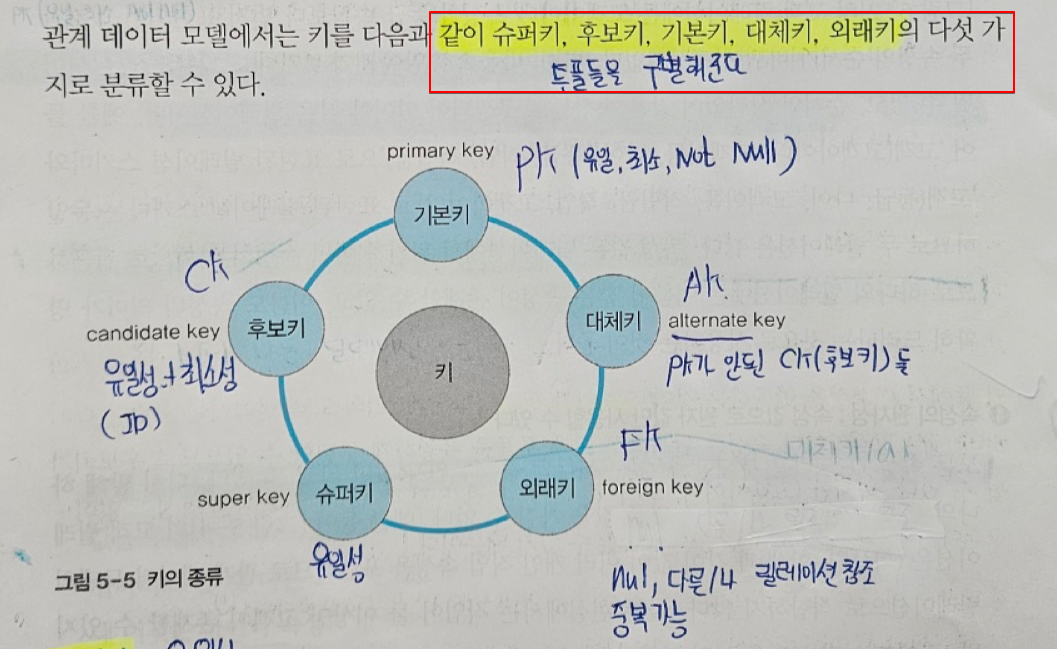 관계 데이터 모델에서는 키를 다음과 같이 슈퍼키, 후보키, 기본키, 대체키, 외래키의 다섯 가
지로 분류할 수 있다.
투플들을 구별해준다
primary key
PK (유일, 최소, Not Null)
기본키
CK
candidate key
후보키
유일성 + 최소성
(ID)
AK
대체키
alternate key
PK가 안된 CK(후보키)들
키
FK
super key
슈퍼키
유일성
외래키
foreign key
그림 5-5 키의 종류
Nul, 다른/나 릴레이션 참조
중복가능